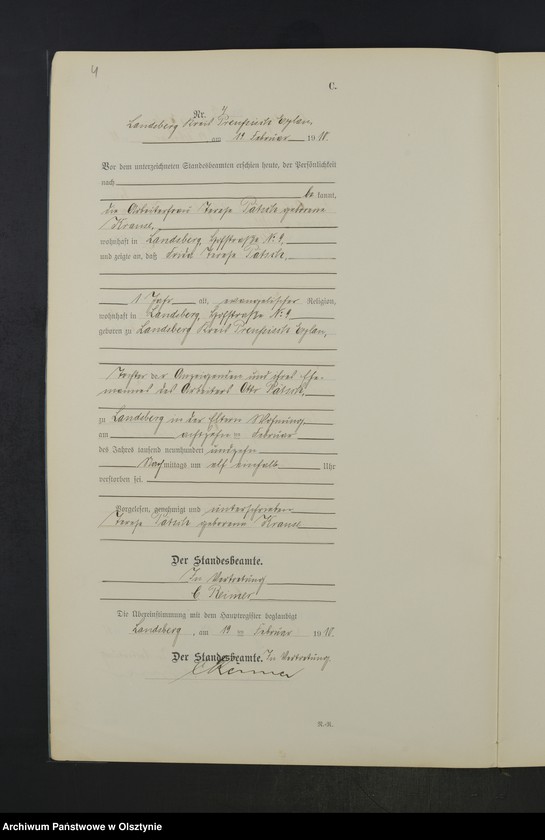 4
C.
Nr. 7
Landsberg Kreis Preußisch Eylau,
am 19 Februar 1910.
Vor dem unterzeichneten Standesbeamten erschien heute, der Persönlichkeit
nach
bekannt,
die Arbeiterfrau Therese Patsch geborene
Kraus,
wohnhaft in Landsberg, Hofstraße Nr. 9,
und zeigte an, daß Therese Patsch,
1 Jahr alt, evangelischer Religion,
wohnhaft in Landsberg, Hofstraße Nr. 9
geboren zu Landsberg Kreis Preußisch Eylau,
Tochter der Anzeigenden und ihres Ehe-
mannes des Arbeiters Otto Patsch,
zu Landsberg in der Eltern Wohnung
am achtzehnten Februar
des Jahres tausend neunhundert und zehn
Nachmittags um elf einhalb Uhr
verstorben sei.
Vorgelesen, genehmigt und unterschrieben
Therese Patsch geborene Kraus
Der Standesbeamte.
In Vertretung
C Reimer
Die Übereinstimmung mit dem Hauptregister beglaubigt
Landsberg, am 19 ten Februar 1910.
Der Standesbeamte. In Vertretung
C Reimer
R.-R.
Archiwum Państwowe w Olsztynie